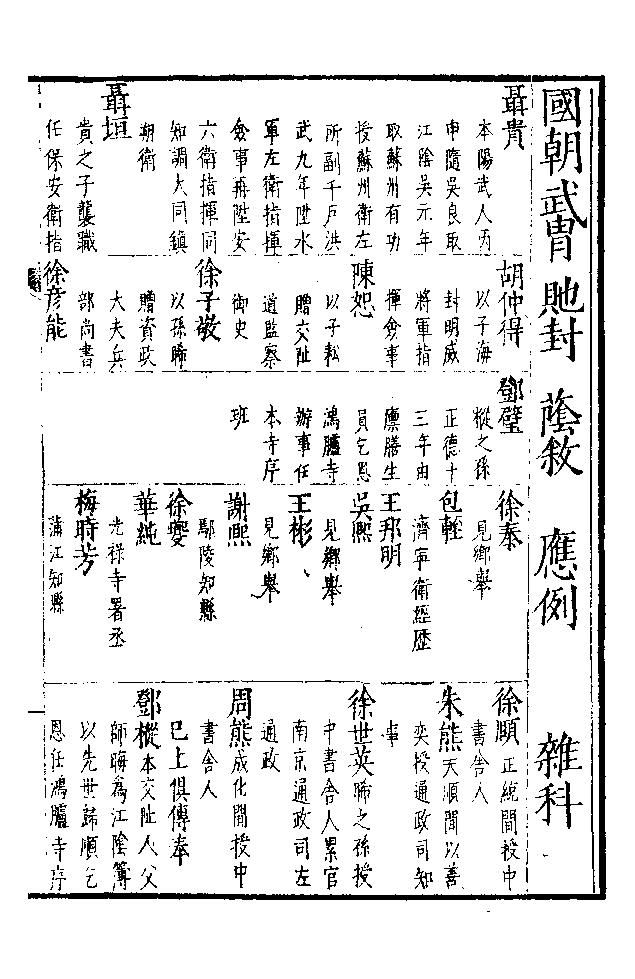 國朝武冑 貤封 蔭敘 應例 雜科
聶貴
本陽武人丙
申隨吳良取
江陰吳元年
取蘇州有功
授蘇州衛左
所副千戶洪
武九年陞水
軍左衛指揮
僉事再陞安
六衛指揮同
知調大同鎮
朔衛
聶垣
貴之子襲職
任保安衛指
胡仲得
以子海
封明威
將軍指
揮僉事
陳恕
以子松
贈交阯
道監察
御史
徐子敬
以孫晞
贈資政
大夫兵
部尚書
徐彥能
鄧璧
樅之孫
正德十
三年由
廩膳生
員乞恩
鴻臚寺
辦事任
本寺序
班
徐泰
見鄉舉
包輊
濟寧衛經歷
王邦明
吳熙
見鄉舉
王彬
見鄉舉
謝熙
鄢陵知縣
徐夔
華純
光祿寺署丞
梅時芳
蒲江知縣
徐顒正統間授中
書舍人
朱熊天順間以善
奕授通政司知
事
徐世英晞之孫授
中書舍人累官
南京通政司左
通政
周熊成化間授中
書舍人
已上俱傳奉
鄧樅本交阯人父
師晦為江陰簿
以先世歸順乞
恩任鴻臚寺序